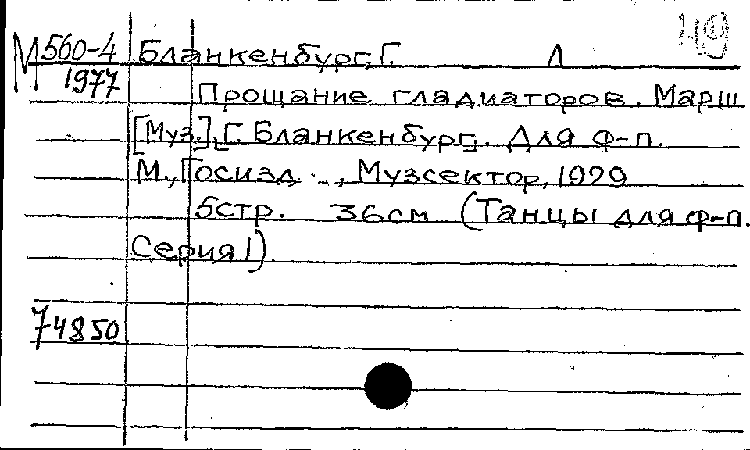 М 560-4 Бланкенбург, Г. Л 49
1977 Прощание гладиаторов. Марш
[Муз.], Г. Бланкенбург. Для ф-п.
М., Госизд, ..., Музсектор, 1929
5стр. 36см (Танцы для ф-п.
Серия 1)
74850